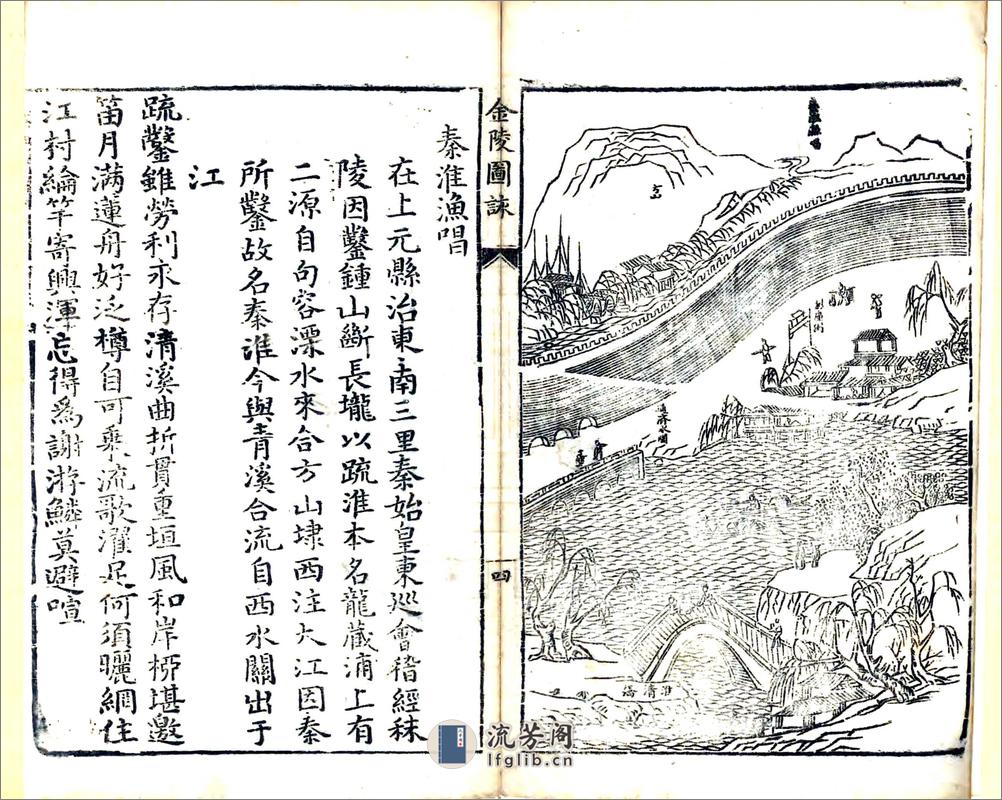 金陵圖詠
四
方山
通濟水關
淮清橋
秦淮漁唱
在上元縣治東南三里秦始皇東巡會稽經秣
陵因鑿鍾山斷長壠以疏淮本名龍藏浦上有
二源自句容溧水來合方山埭西注大江因秦
所鑿故名秦淮今與青溪合流自西水關出于
江
疏鑿雖勞利永存清溪曲折貫重垣風和岸栁堪邀
笛月滿蓮舟好泛樽自可乗流歌濯足何須曬網住
江村綸竿寄興渾忘得為謝游鱗莫避喧
流芳阁
lfglib.cn